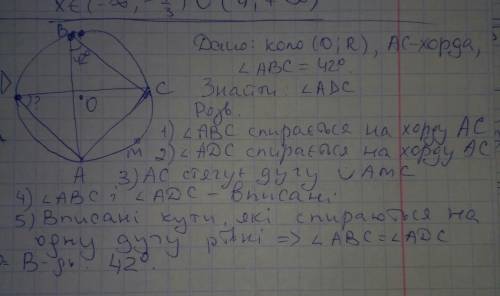 x∈(-∞; -1/3) ∪ (4; +∞)
B
D
?
O
C
A
M
Дано: коло (O; R), AC-хорда,
∠ABC = 42°.
Знайти: ∠ADC
Розв.
1) ∠ABC спирається на хорду AC
2) ∠ADC спирається на хорду AC
3) AC стягує дугу ∪AMC
4) ∠ABC і ∠ADC – вписані
5) Вписані кути, які спираються на
одну дугу рівні => ∠ABC = ∠ADC
В-дь: 42°.